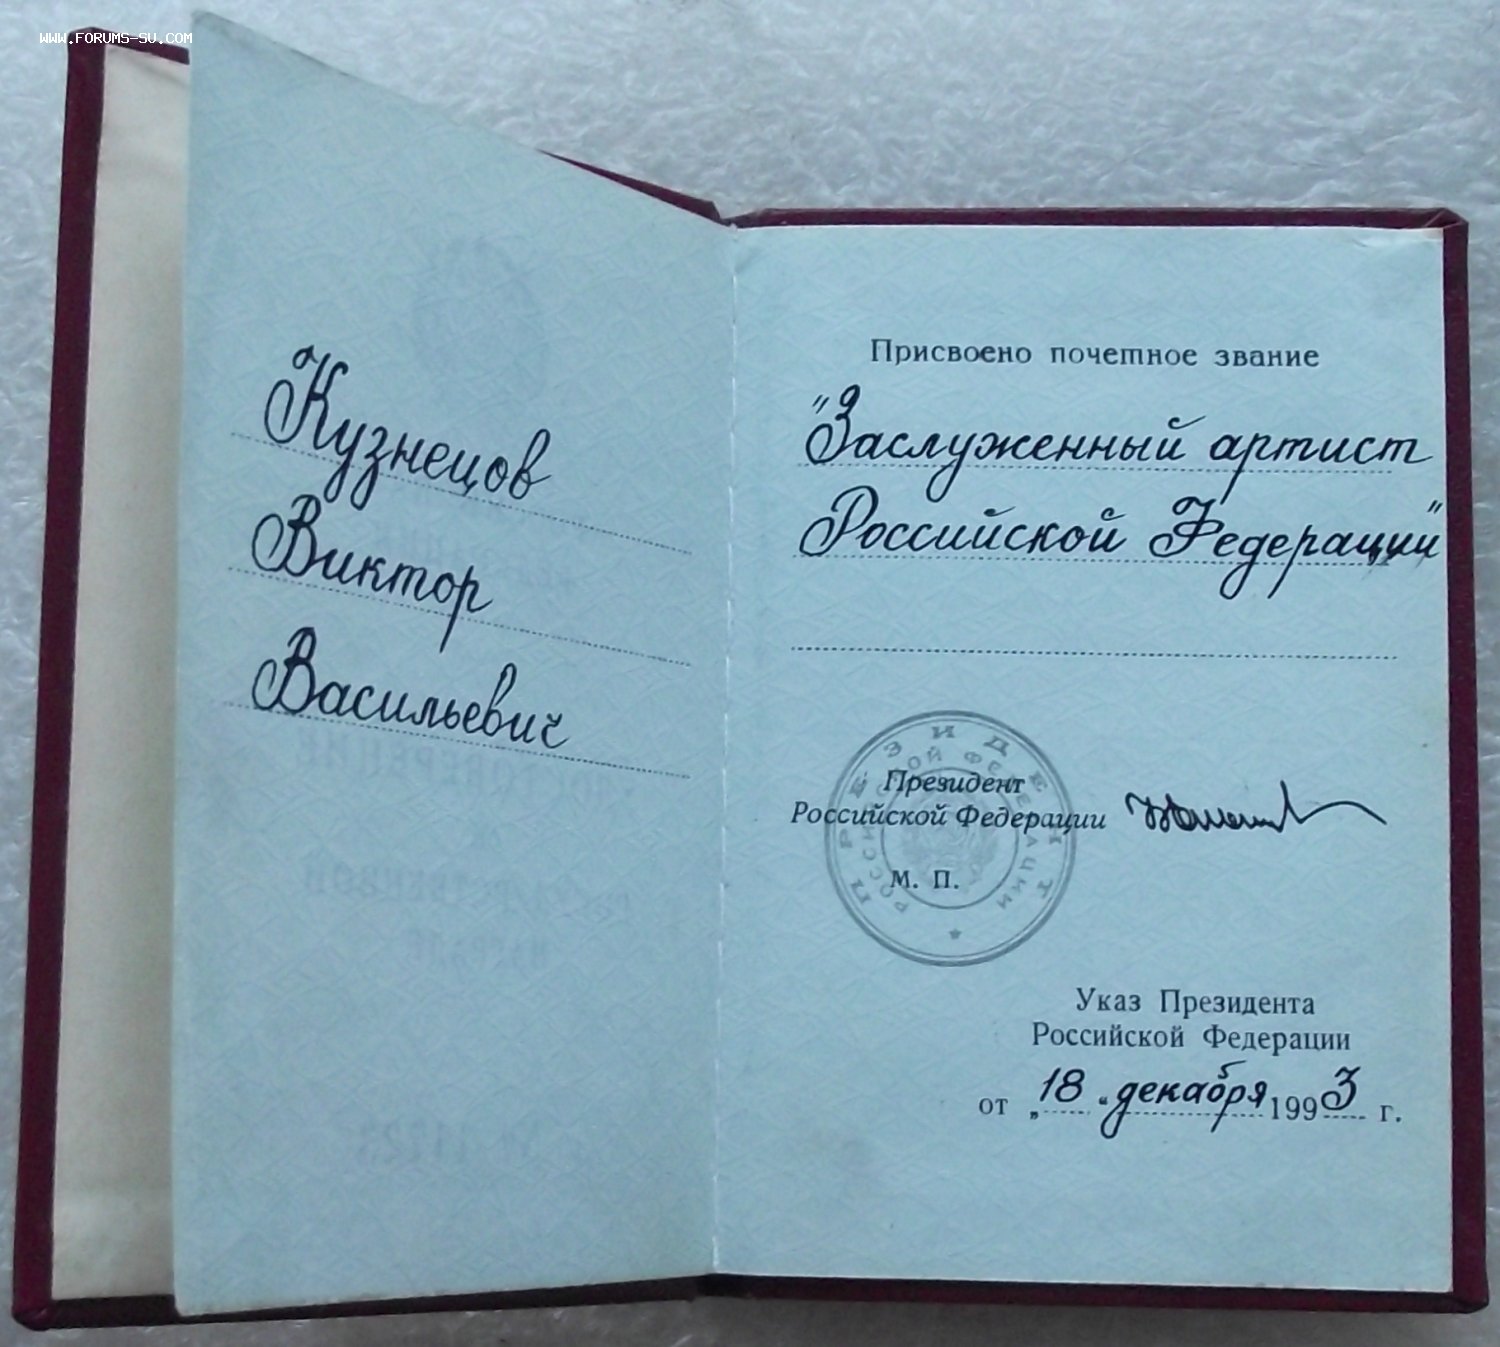 WWW.FORUMS-SU.COM
Кузнецов
Виктор
Васильевич
Присвоено почетное звание
"Заслуженный артист
Российской Федерации"
Президент
Российской Федерации
М. П.
ПРЕЗИДЕНТ
РОССИЙСКОЙ ФЕДЕРАЦИИ
Указ Президента
Российской Федерации
от „18“ декабря 1993 г.